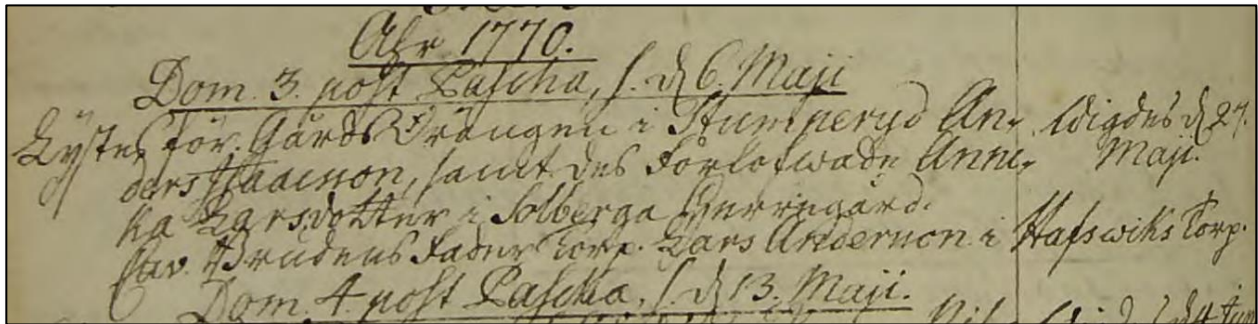 Åhr 1770.
Dom. 3. post Pascha, s. d 6. Maji
Lystes för Gårds Drängen i Stumperyd An- Wigdes d 27.
ders Isaacsson, samt des Förlofwade Anni- Maji.
ka Larsdotter i Solberga Herregård.
Cav. Brudens Fader Torp. Lars Andersson i Hafswiks Torp.
Dom. 4. post Pascha, s. d 13. Maji.